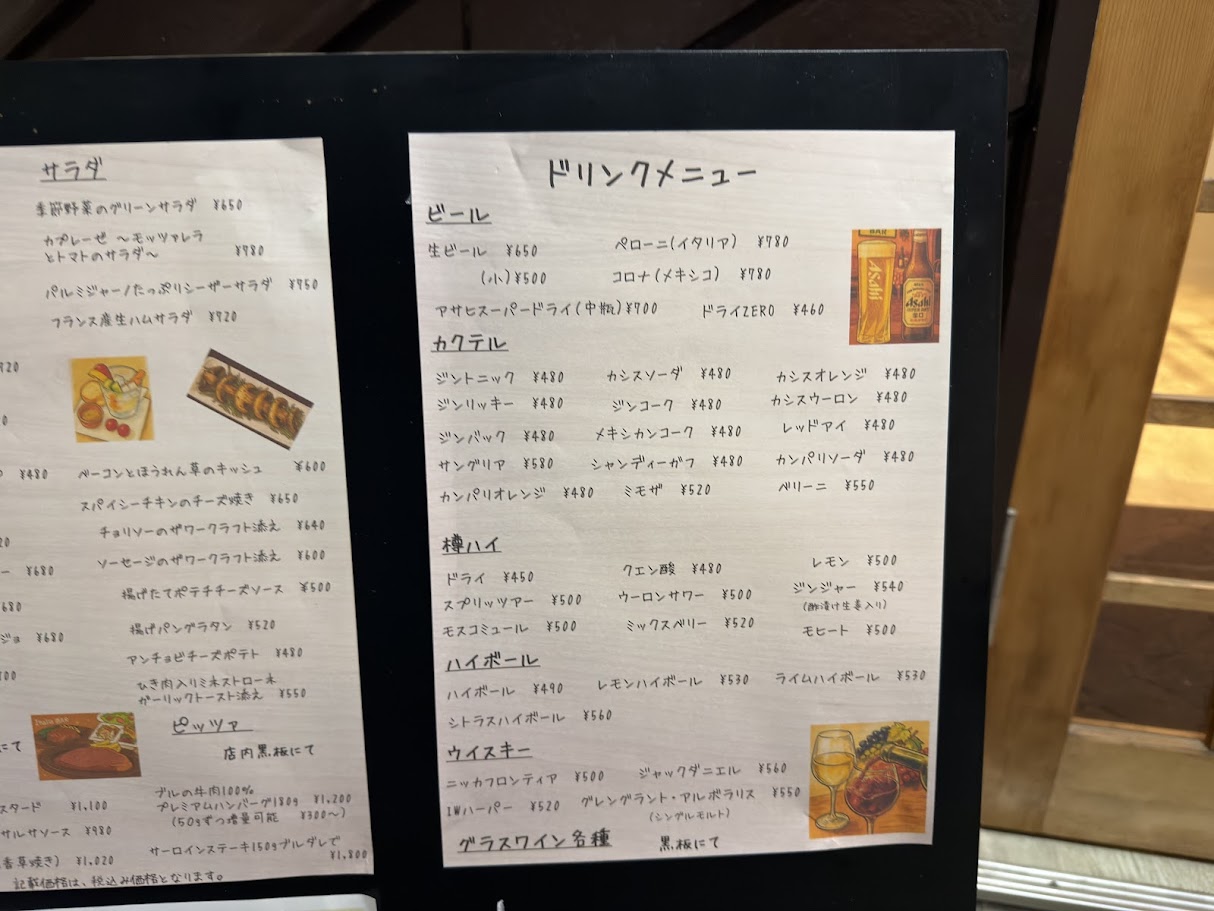 サラダ
季節野菜のグリーンサラダ ¥650
カプレーゼ ～モッツァレラ
とトマトのサラダ～ ¥780
パルミジャーノたっぷりシーザーサラダ ¥750
フランス産生ハムサラダ ¥720
¥480
ベーコンとほうれん草のキッシュ ¥600
スパイシーチキンのチーズ焼き ¥650
チョリソーのザワークラフト添え ¥640
ー ¥680
ソーセージのザワークラフト添え ¥600
揚げたてポテチチーズソース ¥500
680
揚げパングラタン ¥520
ジョ ¥680
アンチョビチーズポテト ¥480
ひき肉入りミネストローネ
ガーリックトースト添え ¥550
ピッツァ
にて
店内黒板にて
ブルの牛肉100%
スタード ¥1,100
プレミアムハンバーグ180g ¥1,200
(50gずつ増量可能 ¥300～)
サルサソース ¥980
サーロインステーキ150gブルダレで
¥1,800
香草焼き) ¥1,020
記載価格は、税込み価格となります。
ドリンクメニュー
ビール
生ビール ¥650 ペローニ(イタリア) ¥780
(小)¥500 コロナ(メキシコ) ¥780
アサヒスーパードライ(中瓶)¥700 ドライZERO ¥460
Asahi
Asahi
カクテル
ジントニック ¥480 カシスソーダ ¥480 カシスオレンジ ¥480
ジンリッキー ¥480 ジンコーク ¥480 カシスウーロン ¥480
ジンバック ¥480 メキシカンコーク ¥480 レッドアイ ¥480
サングリア ¥580 シャンディーガフ ¥480 カンパリソーダ ¥480
カンパリオレンジ ¥480 ミモザ ¥520 ベリーニ ¥550
樽ハイ
ドライ ¥450 クエン酸 ¥480 レモン ¥500
スプリッツアー ¥500 ウーロンサワー ¥500 ジンジャー ¥540
(酢漬け生姜入り)
モスコミュール ¥500 ミックスベリー ¥520 モヒート ¥500
ハイボール
ハイボール ¥490 レモンハイボール ¥530 ライムハイボール ¥530
シトラスハイボール ¥560
ウイスキー
ニッカフロンティア ¥500 ジャックダニエル ¥560
IWハーパー ¥520 グレングラント・アルボラリス ¥550
(シングルモルト)
グラスワイン各種 黒板にて